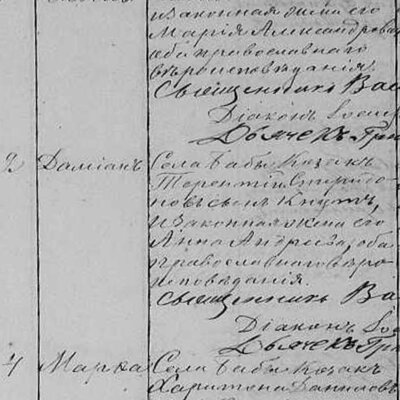 изаконная жена его
Марія Александрова
оба православнаго
вѣроисповѣданія.
Священникъ Вас
Діаконъ Іоси
Дьячекъ Гри
2 Даміанъ Села Бабы Козакъ
Терентій Спиридо-
новъ сынъ Кнутъ,
изаконная жена его
Анна Андреева, оба
православнаговѣро
исповѣданія.
Священникъ Ва
Діаконъ Іос
Дьячекъ Гри
4 Марка Села Бабы Козакъ
Харитона Даниловъ